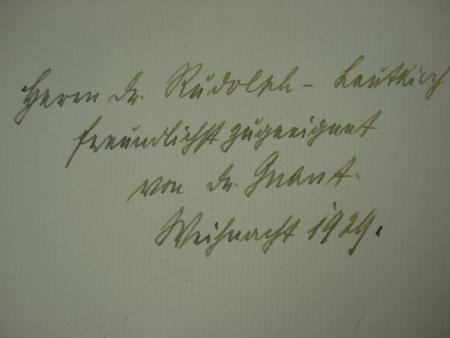 Herrn Dr. Rudolph – Leutkirch
freundlichst zugeeignet
von Dr. Gnant.
Weihnacht 1929.